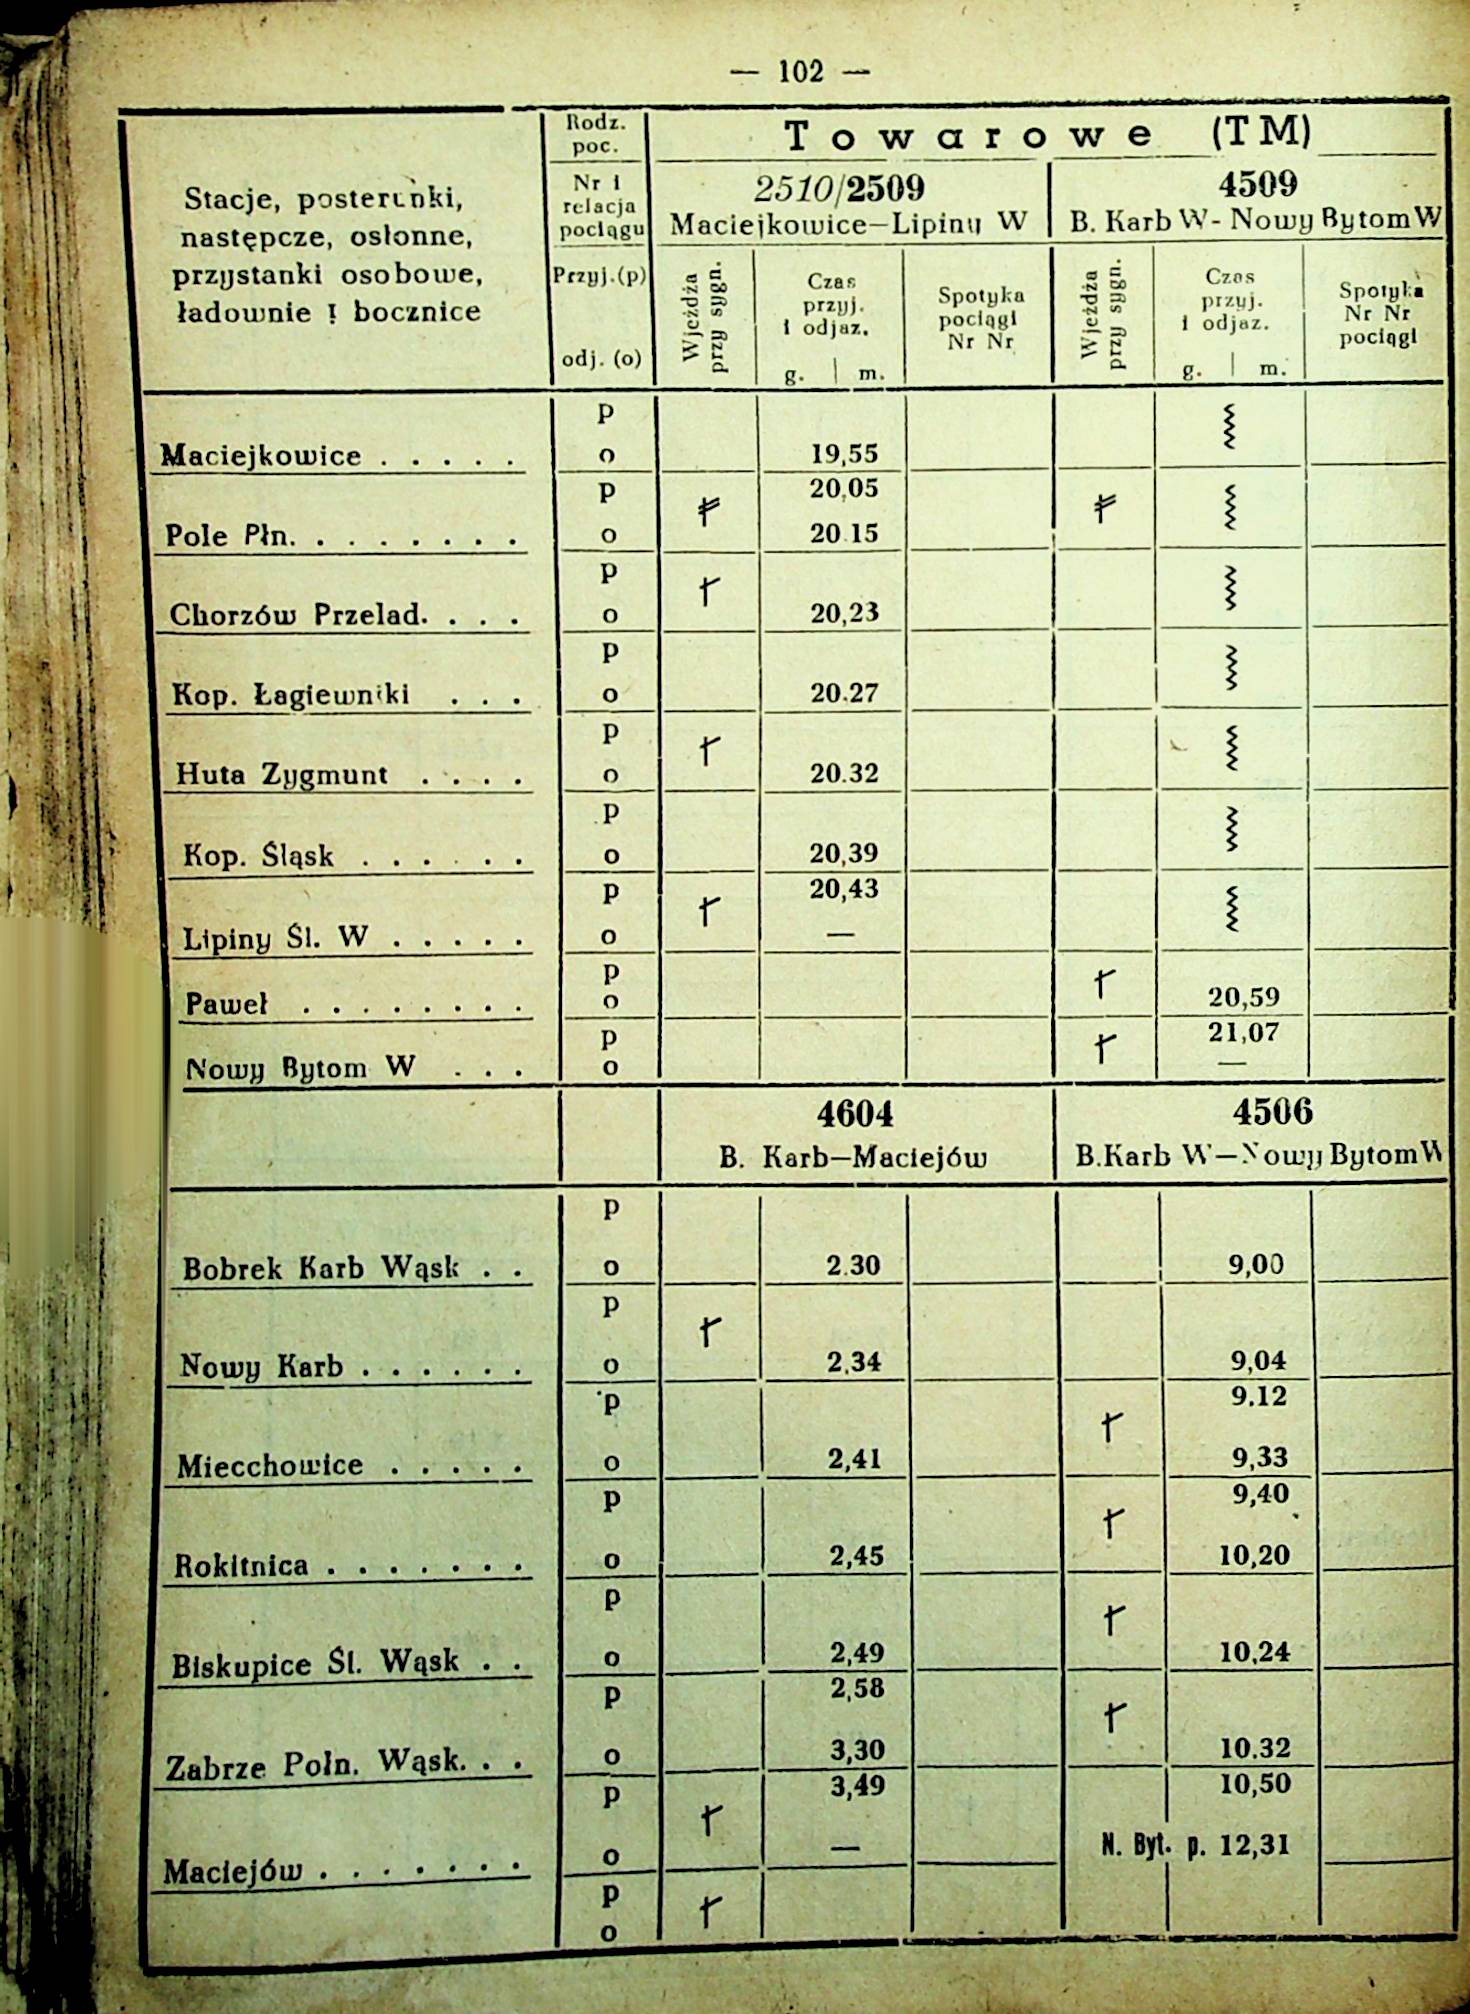 — 102 —
Stacje, posterunki,
następcze, osłonne,
przystanki osobowe,
ładownie i bocznice
Rodz.
poc.
Nr i
relacja
pociągu
Przyj.(p)
odj. (o)
Towarowe (TM)
2510/2509
Maciejkowice—Lipiny W
4509
B. Karb W- Nowy Bytom W
Wjeżdża
przy sygn.
Czas
przyj.
i odjaz.
g. | m.
Spotyka
pociągi
Nr Nr
Wjeżdża
przy sygn.
Czas
przyj.
i odjaz.
g. | m.
Spotyka
Nr Nr
pociągi
p
Maciejkowice . . . . . o 19,55
p 20,05
Pole Płn. . . . . . . . o 20 15
p
Chorzów Przelad. . . . o 20,23
p
Kop. Łagiewniki . . . o 20.27
p
Huta Zygmunt . . . . o 20.32
p
Kop. Śląsk . . . . . . o 20,39
p 20,43
Lipiny Śl. W . . . . . o —
p
Paweł . . . . . . . . o 20,59
p 21,07
Nowy Bytom W . . . o —
4604
B. Karb—Maciejów
4506
B.Karb W—Nowy Bytom W
p
Bobrek Karb Wąsk . . o 2.30 9,00
p
Nowy Karb . . . . . . o 2.34 9,04
p 9.12
Miecchowice . . . . . o 2,41 9,33
p 9,40
Rokitnica . . . . . . . o 2,45 10,20
p
Biskupice Śl. Wąsk . . o 2,49 10,24
p 2,58
Zabrze Połn. Wąsk. . . o 3,30 10.32
p 3,49 10,50
Maciejów . . . . . . . o — N. Byt. p. 12,31
p
o